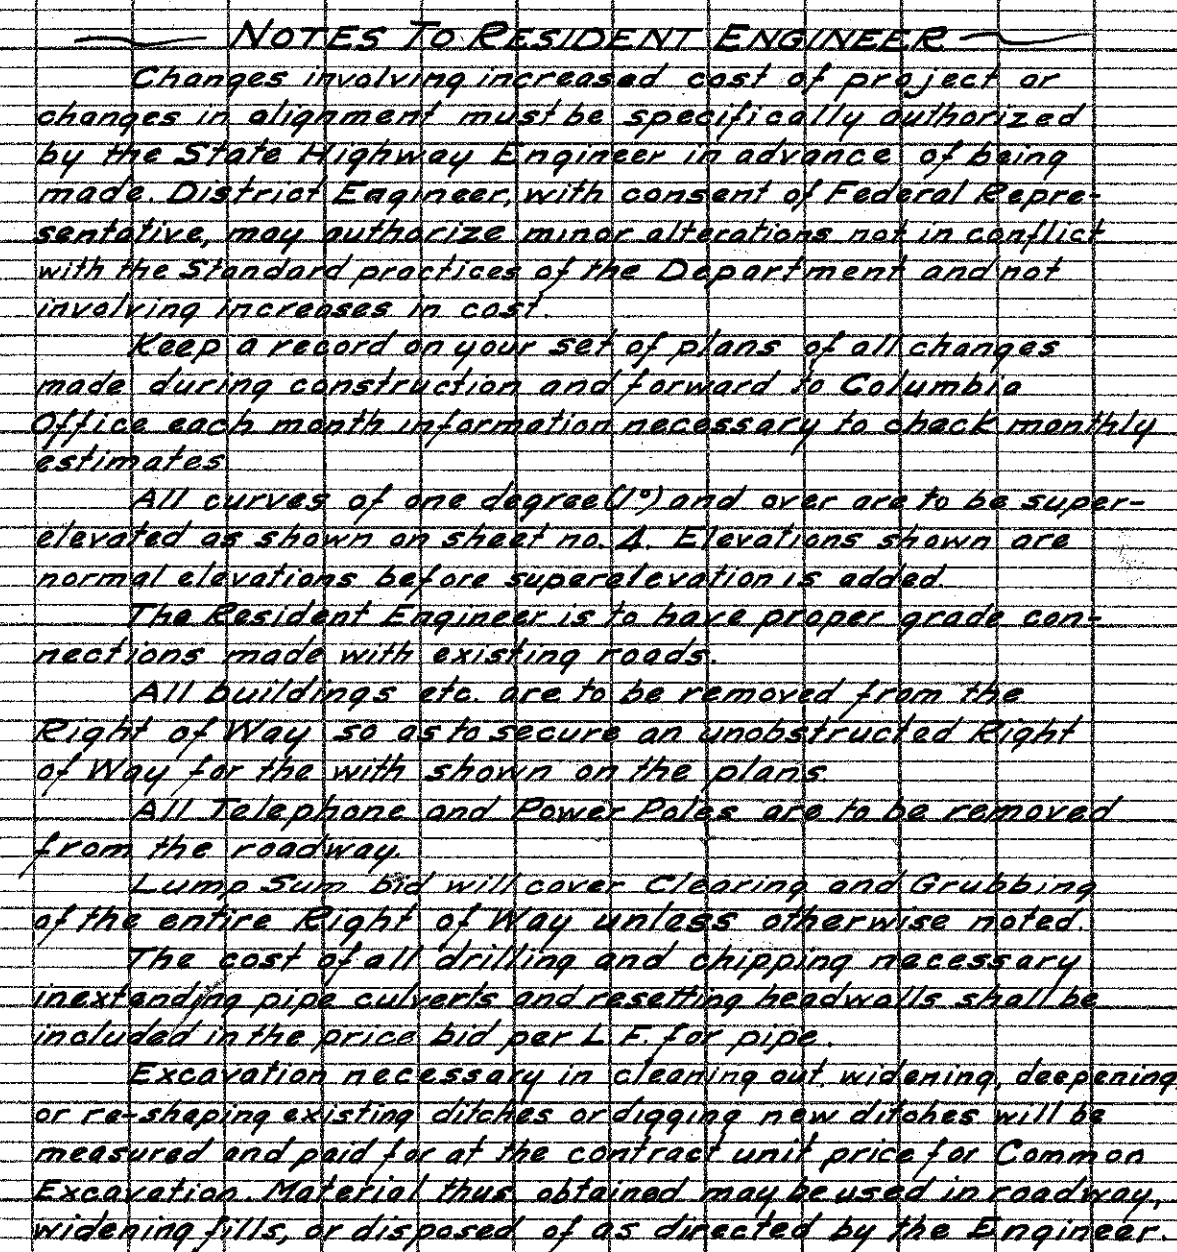 NOTES TO RESIDENT ENGINEER
Changes involving increased cost of project or
changes in alignment must be specifically authorized
by the State Highway Engineer in advance of being
made. District Engineer, with consent of Federal Repre-
sentative, may authorize minor alterations not in conflict
with the Standard practices of the Department and not
involving increases in cost.
Keep a record on your set of plans of all changes
made during construction and forward to Columbia
Office each month information necessary to check monthly
estimates
All curves of one degree (1°) and over are to be super-
elevated as shown on sheet no. 4. Elevations shown are
normal elevations before superelevation is added.
The Resident Engineer is to have proper grade con-
nections made with existing roads.
All buildings etc. are to be removed from the
Right of Way so as to secure an unobstructed Right
of Way for the with shown on the plans.
All Telephone and Power Poles are to be removed
from the roadway.
Lump Sum bid will cover Clearing and Grubbing
of the entire Right of Way unless otherwise noted.
The cost of all drilling and chipping necessary
in extending pipe culverts and resetting headwalls shall be
included in the price bid per L.F. for pipe.
Excavation necessary in cleaning out, widening, deepening
or re-shaping existing ditches or digging new ditches will be
measured and paid for at the contract unit price for Common
Excavation. Material thus obtained may be used in roadway,
widening fills, or disposed of as directed by the Engineer.